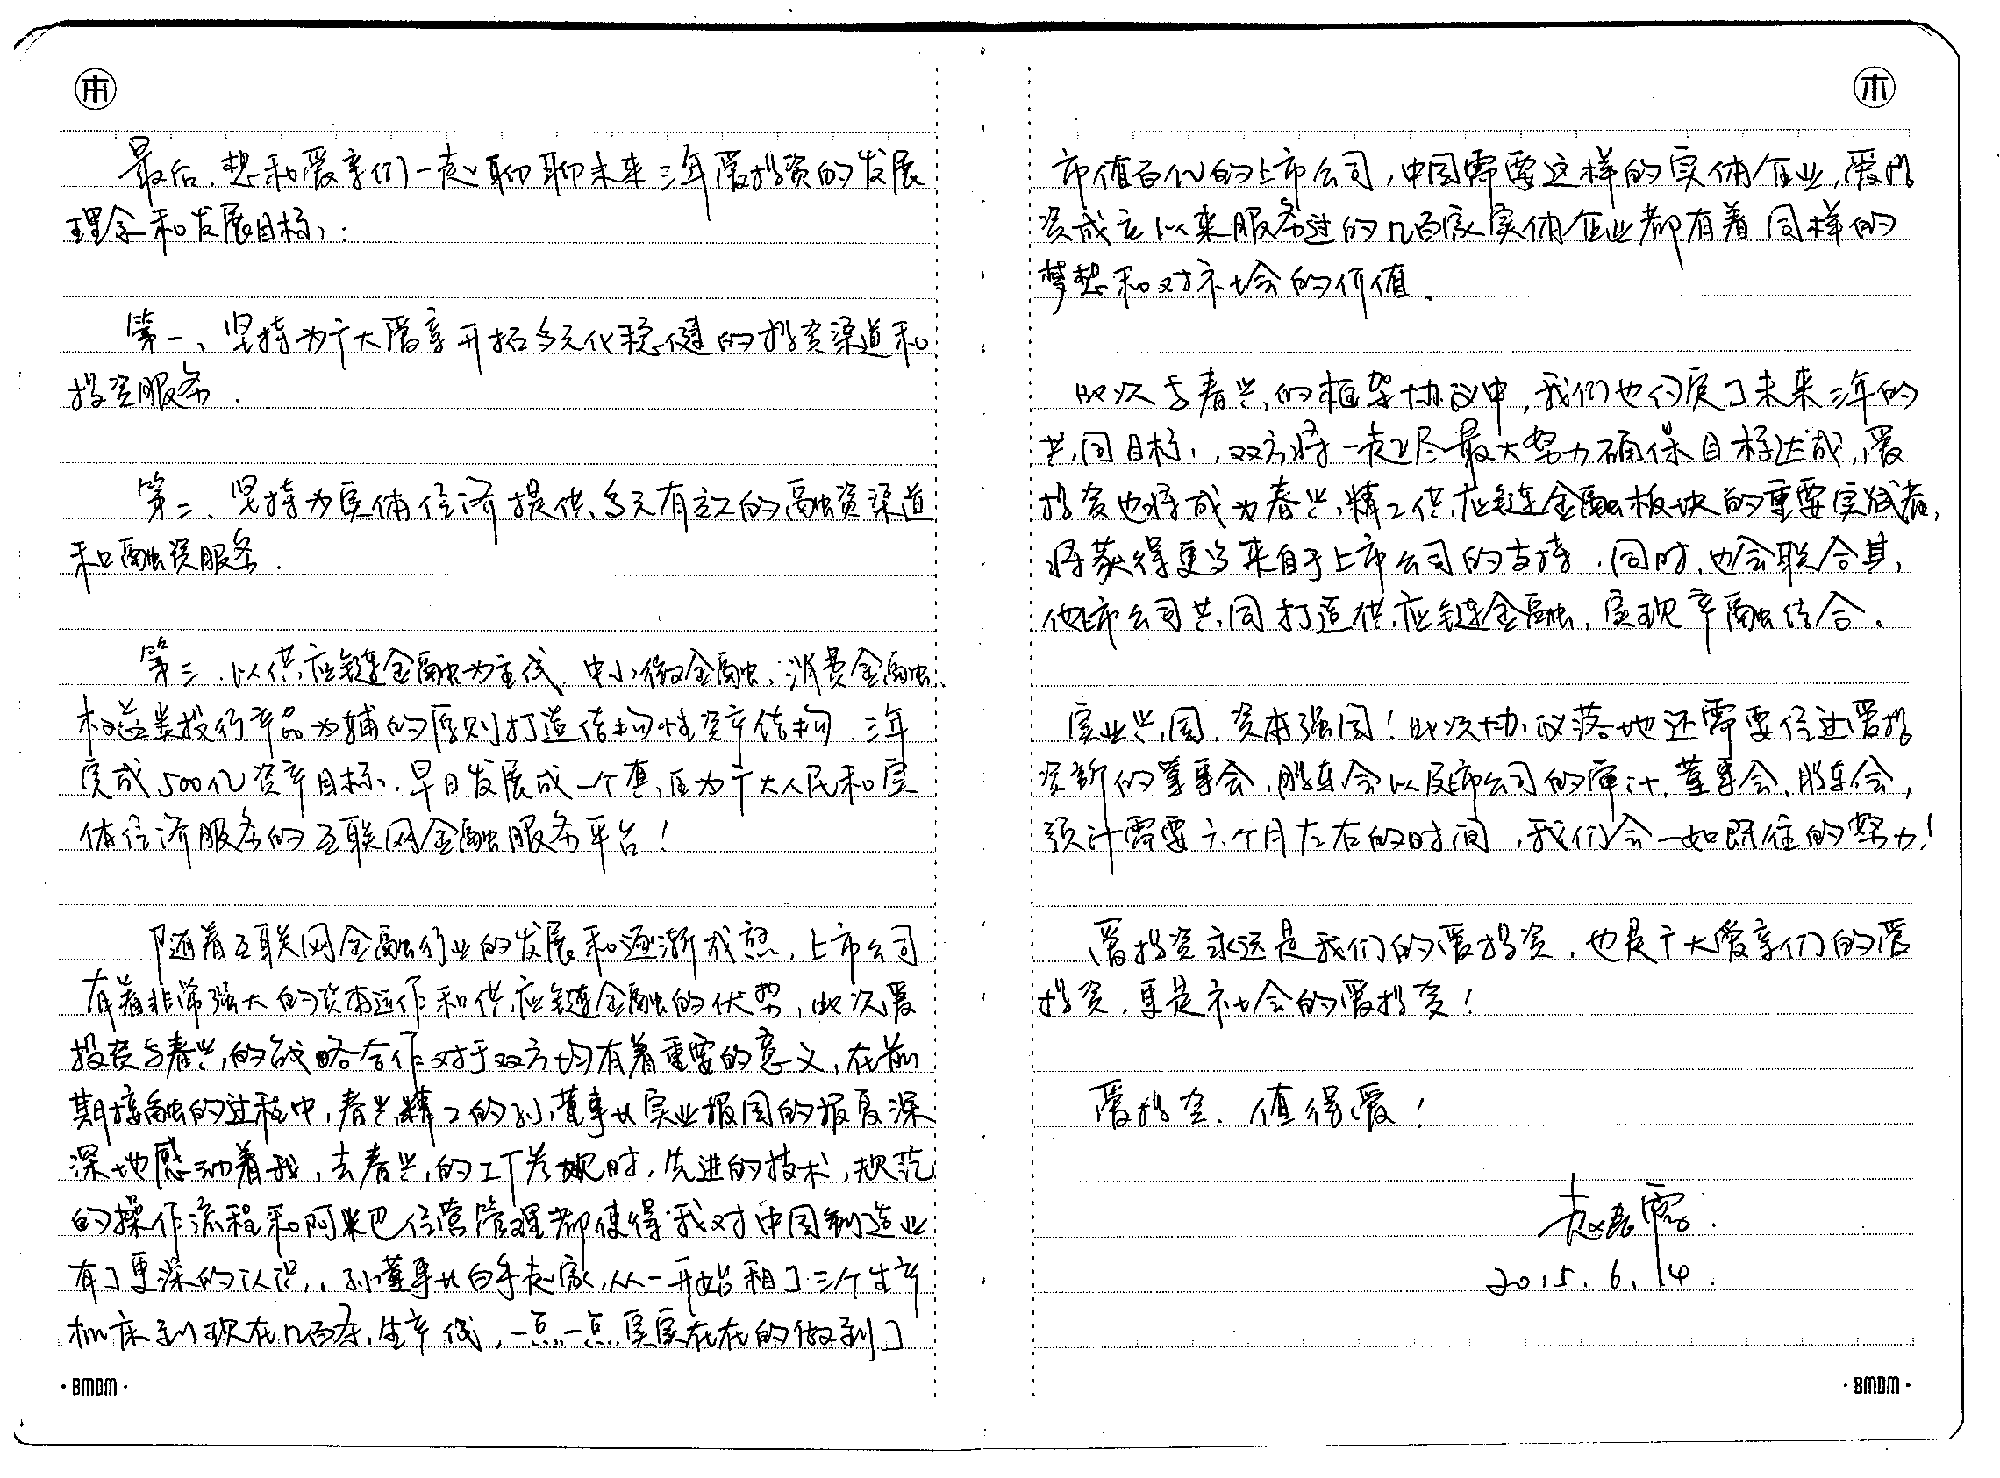 最后,想和爱亲们一起聊聊未来三年爱投资的发展
理念和发展目标:
第一、坚持为广大爱亲开拓多元化稳健的投资渠道和
投资服务.
第二、坚持为实体经济提供多元有效的融资渠道
和融资服务.
第三、以供应链金融为主线、中小微金融、消费金融、
权益类投行产品为辅的原则打造结构性资产结构,三年
完成500亿资产目标、早日发展成一个真正为广大人民和实
体经济服务的互联网金融服务平台!
随着互联网金融行业的发展和逐渐成熟,上市公司
有着非常强大的资本运作和供应链金融的优势,此次爱
投资与春兴的战略合作对于双方均有着重要的意义,在前
期接触的过程中,春兴精工的孙董事长实业报国的报负深
深地感动着我,去春兴的工厂参观时,先进的技术,规范
的操作流程和阿米巴经营管理都使得我对中国制造业
有了更深的认识,孙董事长白手起家,从一开始租了三个生产
机床到现在几百条生产线,一点一点实实在在的做到了
市值百亿的上市公司,中国需要这样的实体企业,爱投
资成立以来服务过的几百家实体企业都有着同样的
梦想和对社会的价值.
此次与春兴的框架协议中,我们也约定了未来三年的
共同目标,双方将一起尽最大努力确保目标达成,爱
投资也将成为春兴精工供应链金融板块的重要实践者,
将获得更多来自于上市公司的支持.同时,也会联合其
他上市公司共同打造供应链金融,实现产融结合.
实业兴国,资本强国!此次协议落地还需要经过爱投
资新的董事会,股东会以及上市公司的审计,董事会,股东会,
预计需要六个月左右的时间,我们会一如既往的努力!
爱投资永远是我们的爱投资,也是广大爱亲们的爱
投资,更是社会的爱投资!
爱投资,值得爱!
2015.6.14.
·BMDM·
·BMDM·